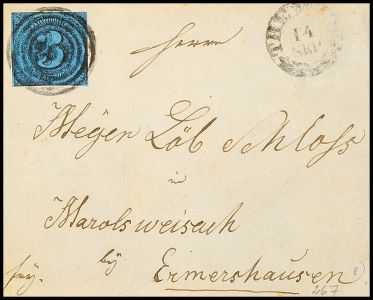 3
14
SEP
Herrn
Meyer Löb Schloss
in
Marolsweisach
by
Ermershausen
267